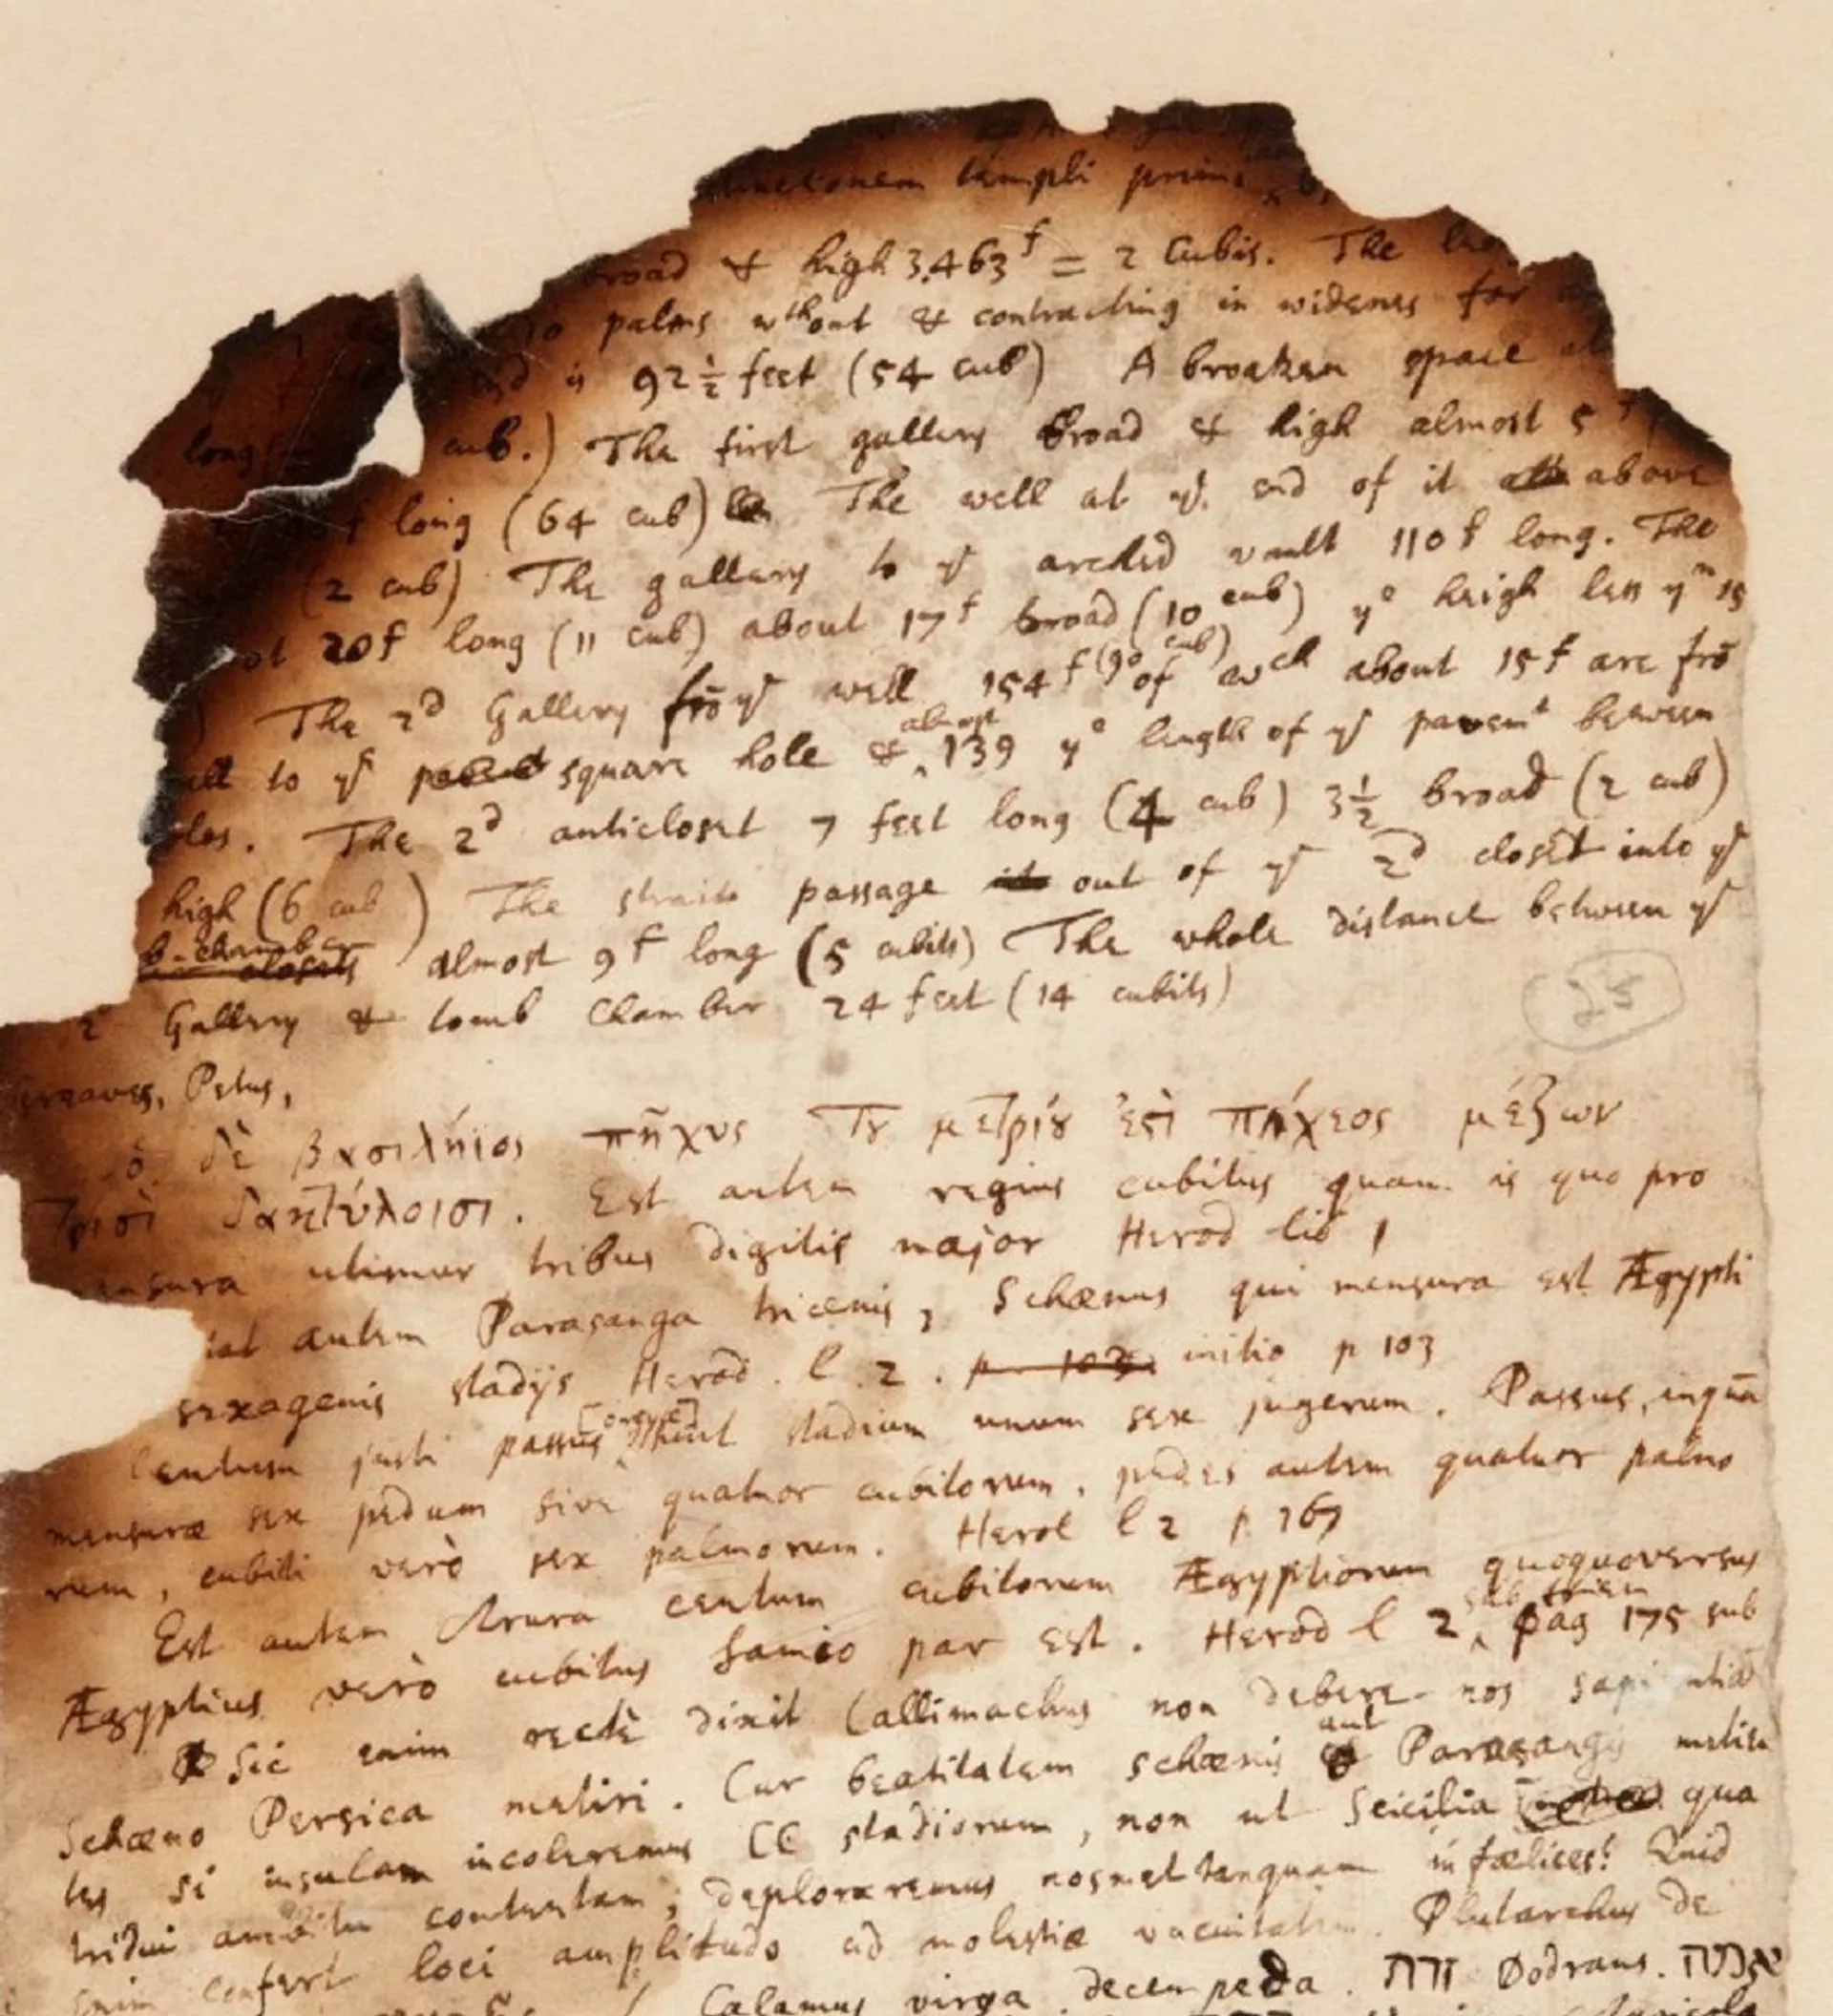 templi primi
broad & high 3.463f = 2 Cubis. The
palms wthout & contracting in widenes for
end is 92½ feet (54 cub) A broaken space
long cub.) The first gallery broad & high almost 5
long (64 cub) The well at ye end of it above
(2 cub) The gallery to ye arched vault 110f long. The
20f long (11 cub) about 17f broad (10 cub) ye heigh less yn 15
The 2d Gallery frō ye well 154f (90 cub) of wch about 15f are frō
to ye square hole & almost 139 ye length of ye pavemt between
The 2d anticloset 7 feet long (4 cub) 3½ broad (2 cub)
high (6 cub) The strait passage out of ye 2d closet into ye
b-chamber closets almost 9f long (5 cubits) The whole distance between ye
2 Gallery & tomb Chamber 24 feet (14 cubits)
25
Greaves, Petus,
ὁ δὲ βασιλήιος πῆχυς τȣ̂ μετρίȣ ἐϛὶ πήχεος μέζων
τρισὶ δακτύλοισι. Est autem regius cubitus quam is quo pro
mensura utimur tribus digitis major Herod lib 1
autem Parasanga tricenis, Schænus qui mensura est Ægypti
sexagenis stadijs Herod. l. 2. p 103 initio p 103
Centum justi passus [orgyæ] stadium unum sex jugerum. Passus, inquā
mensuræ sex pedum sive quatuor cubitorum, pedes autem quatuor palmo
rum, cubiti verò sex palmorum. Herod l 2 p 167
Est autem Arura centum cubitorum Ægyptiorum quoquoversus
Ægyptius verò cubitus Samio par est. Herod l 2, pag 175 sub
Sic enim rectè dixit Callimachus non debere nos
Schæno Persica metiri. Cur beatitatem schænis aut Parasangis metien
tes si insulam incoleremus CC stadiorum, non ut Seicilia qua
tridui ambitu contentam, deploraremus nosmet tanquam infælices? Quid
enim confert loci amplitudo ad molestiæ vacuitatem. Plutarchus de
Calamus virga decempeda. זרת Dodrans.